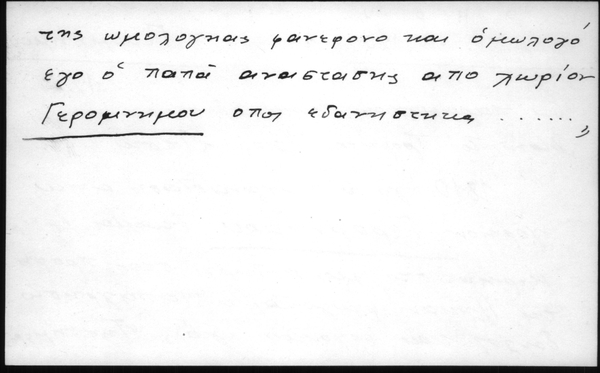 της ωμολογηας φανεφονο και ὁμωλογό
εγο ὁ παπᾶ αναστασης απο χωρίον
Γερομνημου οπου εδανηστηκα .......»